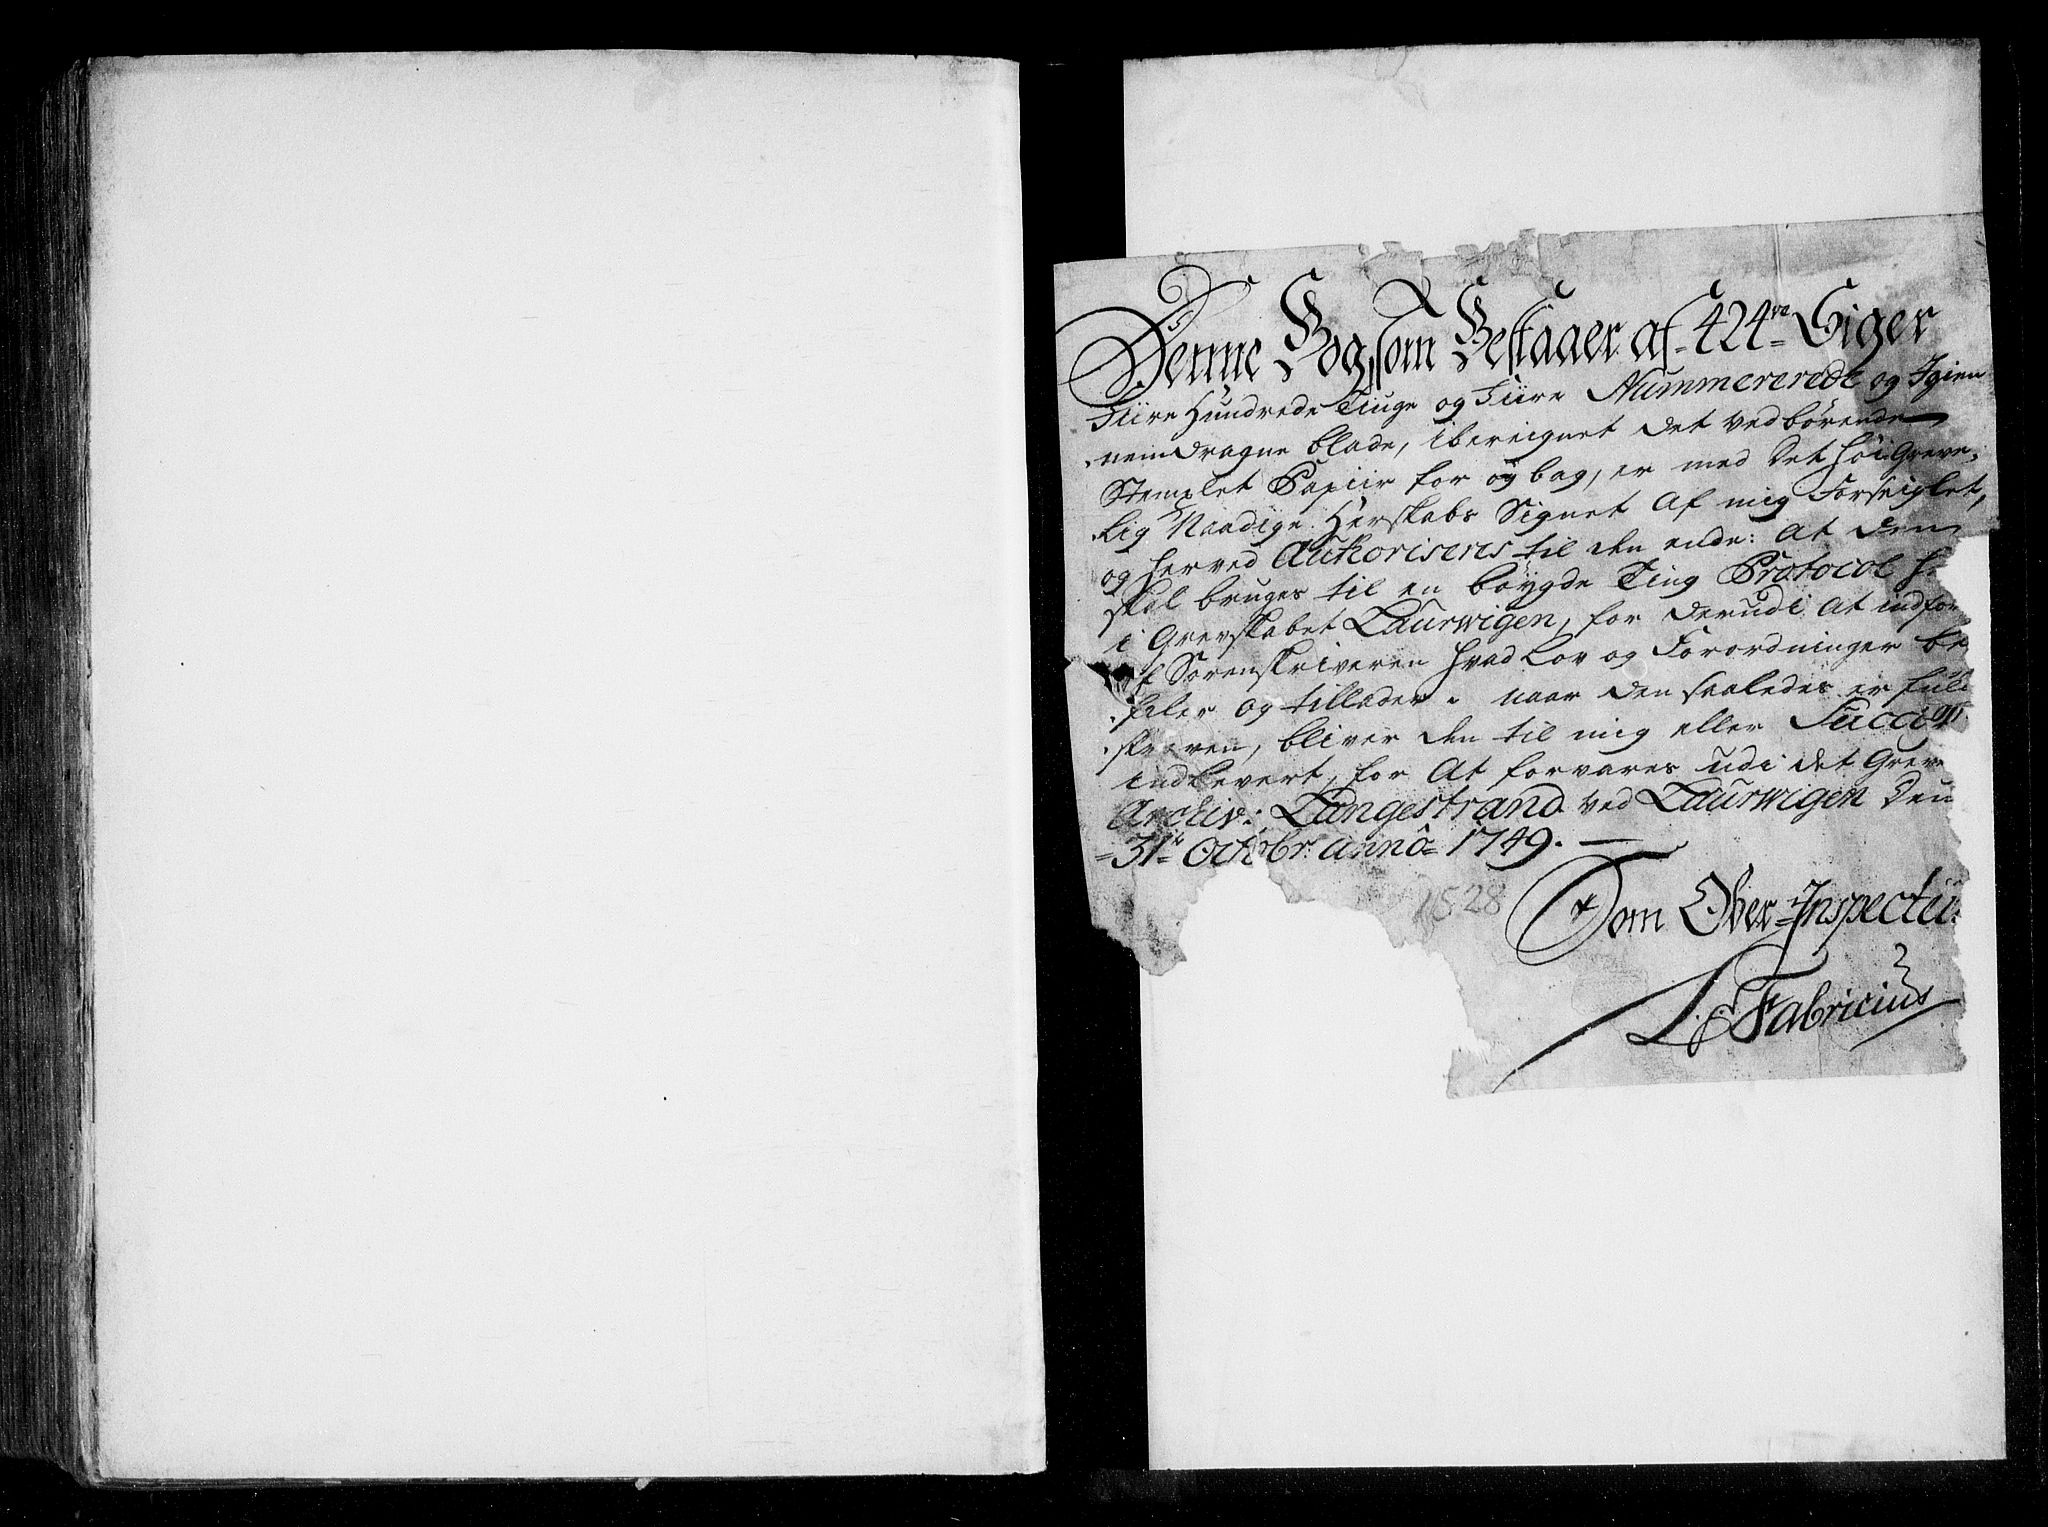 Denne Bog som Bestaaer af 424re Siger
Fiire Hundrede Tiuge og Fiire Nummererede og Igien
nemdragne blade, iberignet det vedbørende
Stemplet Papiir for og bag, er med Det høi Greve-
lig Naadige Herskabs Signet Af mig Forseiglet,
og herved Authoriseres til den ende: At den
skal bruges til en bøygde Ting Protocol
i Grevskabet Laurwigen, for derudi At indfør
af Sorenskriveren hvad Lov og Forordninger be
faler og tillader. naar den saaledes er fuld
skreven, bliver den til mig eller
indlevert, for At forvares udi det Greve
Archiv: Langestrand ved Laurwigen Den
31te Octobr: anno 1749.
1528
Som Ober-Inspecteu
L. Fabricius